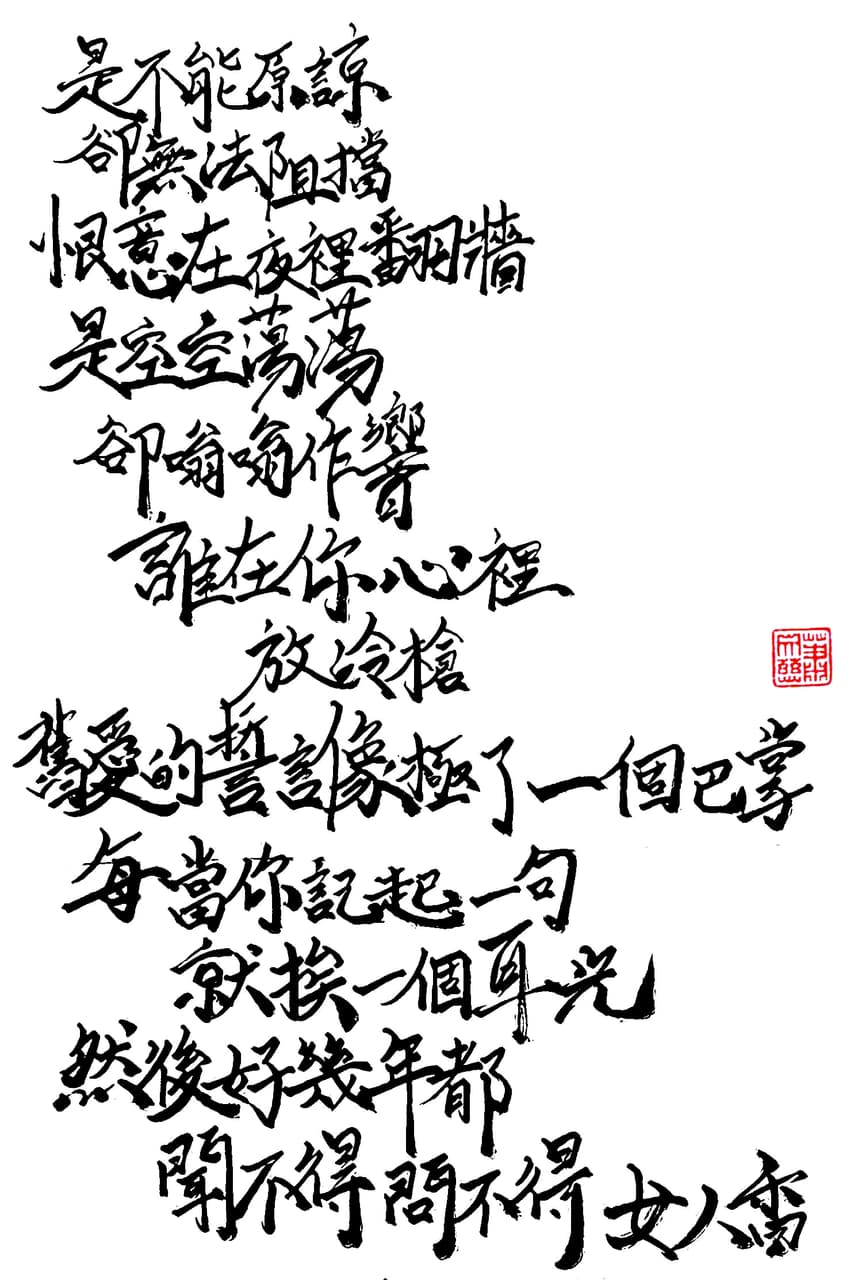 是不能原諒
卻無法阻擋
恨意在夜裡翻牆
是空空蕩蕩
卻嗡嗡作響
誰在你心裡
放冷槍
舊愛的誓言像極了一個巴掌
每當你記起一句
就挨一個耳光
然後好幾年都
聞不得問不得女人香